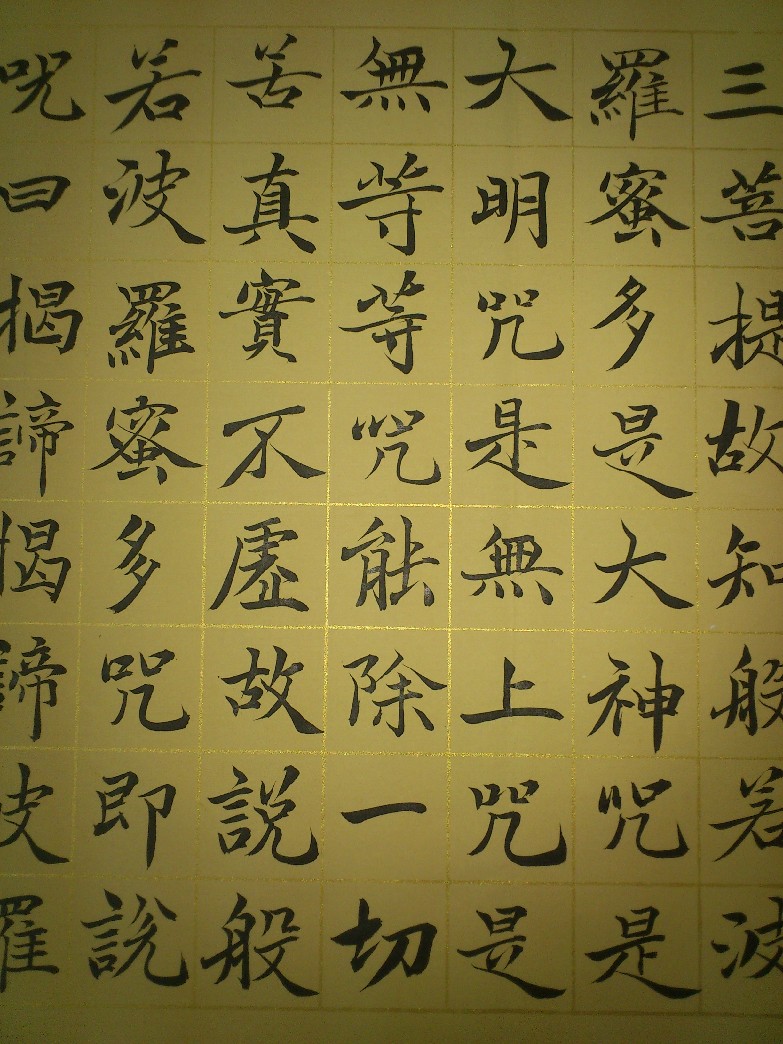 三菩提故知般若波
羅蜜多是大神咒是
大明咒是無上咒是
無等等咒能除一切
苦真實不虛故說般
若波羅蜜多咒即說
咒曰揭諦揭諦波羅